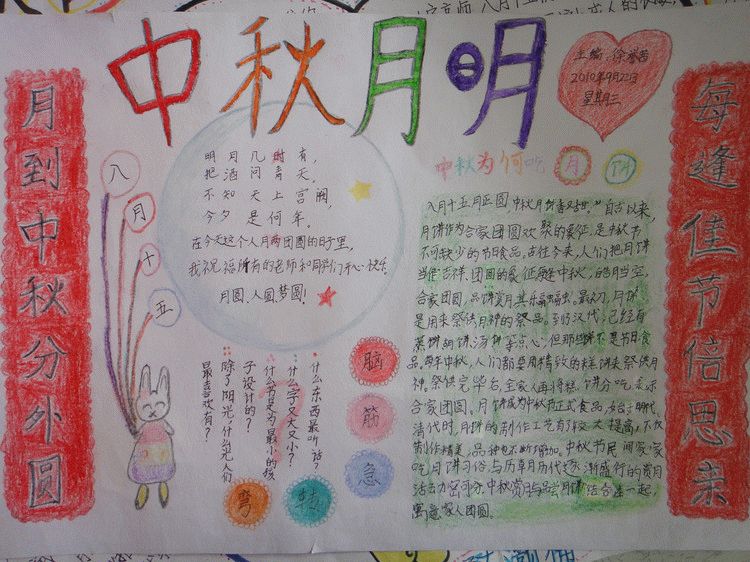 中秋月明
主编:徐
2010年9月22日
星期三
月到中秋分外圆
每逢佳节倍思来
八
月
十
五
明月几时有,
把酒问青天,
不知天上宫阙,
今夕是何年。
在今天这个人月两团圆的日子里,
我祝福所有的老师和同学们开心快乐.
月圆、人圆、梦圆!
中秋为何吃月饼
八月十五月正圆,中秋月饼香又甜。"自古以来,
月饼作为合家团圆欢聚的象征,是中秋节
不可缺少的节日食品,古往今来,人们把月饼
当作吉祥、团圆的象征,每逢中秋,皓月当空,
合家团圆,品饼赏月,其乐融融。最初,月饼
是用来祭供月神的祭品。到汉代,已经有
蒸饼、胡饼、汤饼等点心,但那些饼不是节日食
品,每年中秋,人们都要用精致的糕饼来祭供月
神。祭供完毕后,全家人再将糕、饼分吃,表示
合家团圆。月饼成为中秋节正式食品,始于明代。
清代时,月饼的制作工艺有了较大提高,不仅
制作精美,品种也不断增加。中秋节民间家家
吃月饼习俗,与历年月历代逐渐盛行的赏月
活动密切分.中秋赏月与品尝月饼结合在一起,
寓意家人团圆。
脑
筋
急
转
弯
什么东西最听话?
什么字又大又小?
什么书是为最小的孩
子设计的?
除了阳光,什么光人们
最喜欢有?